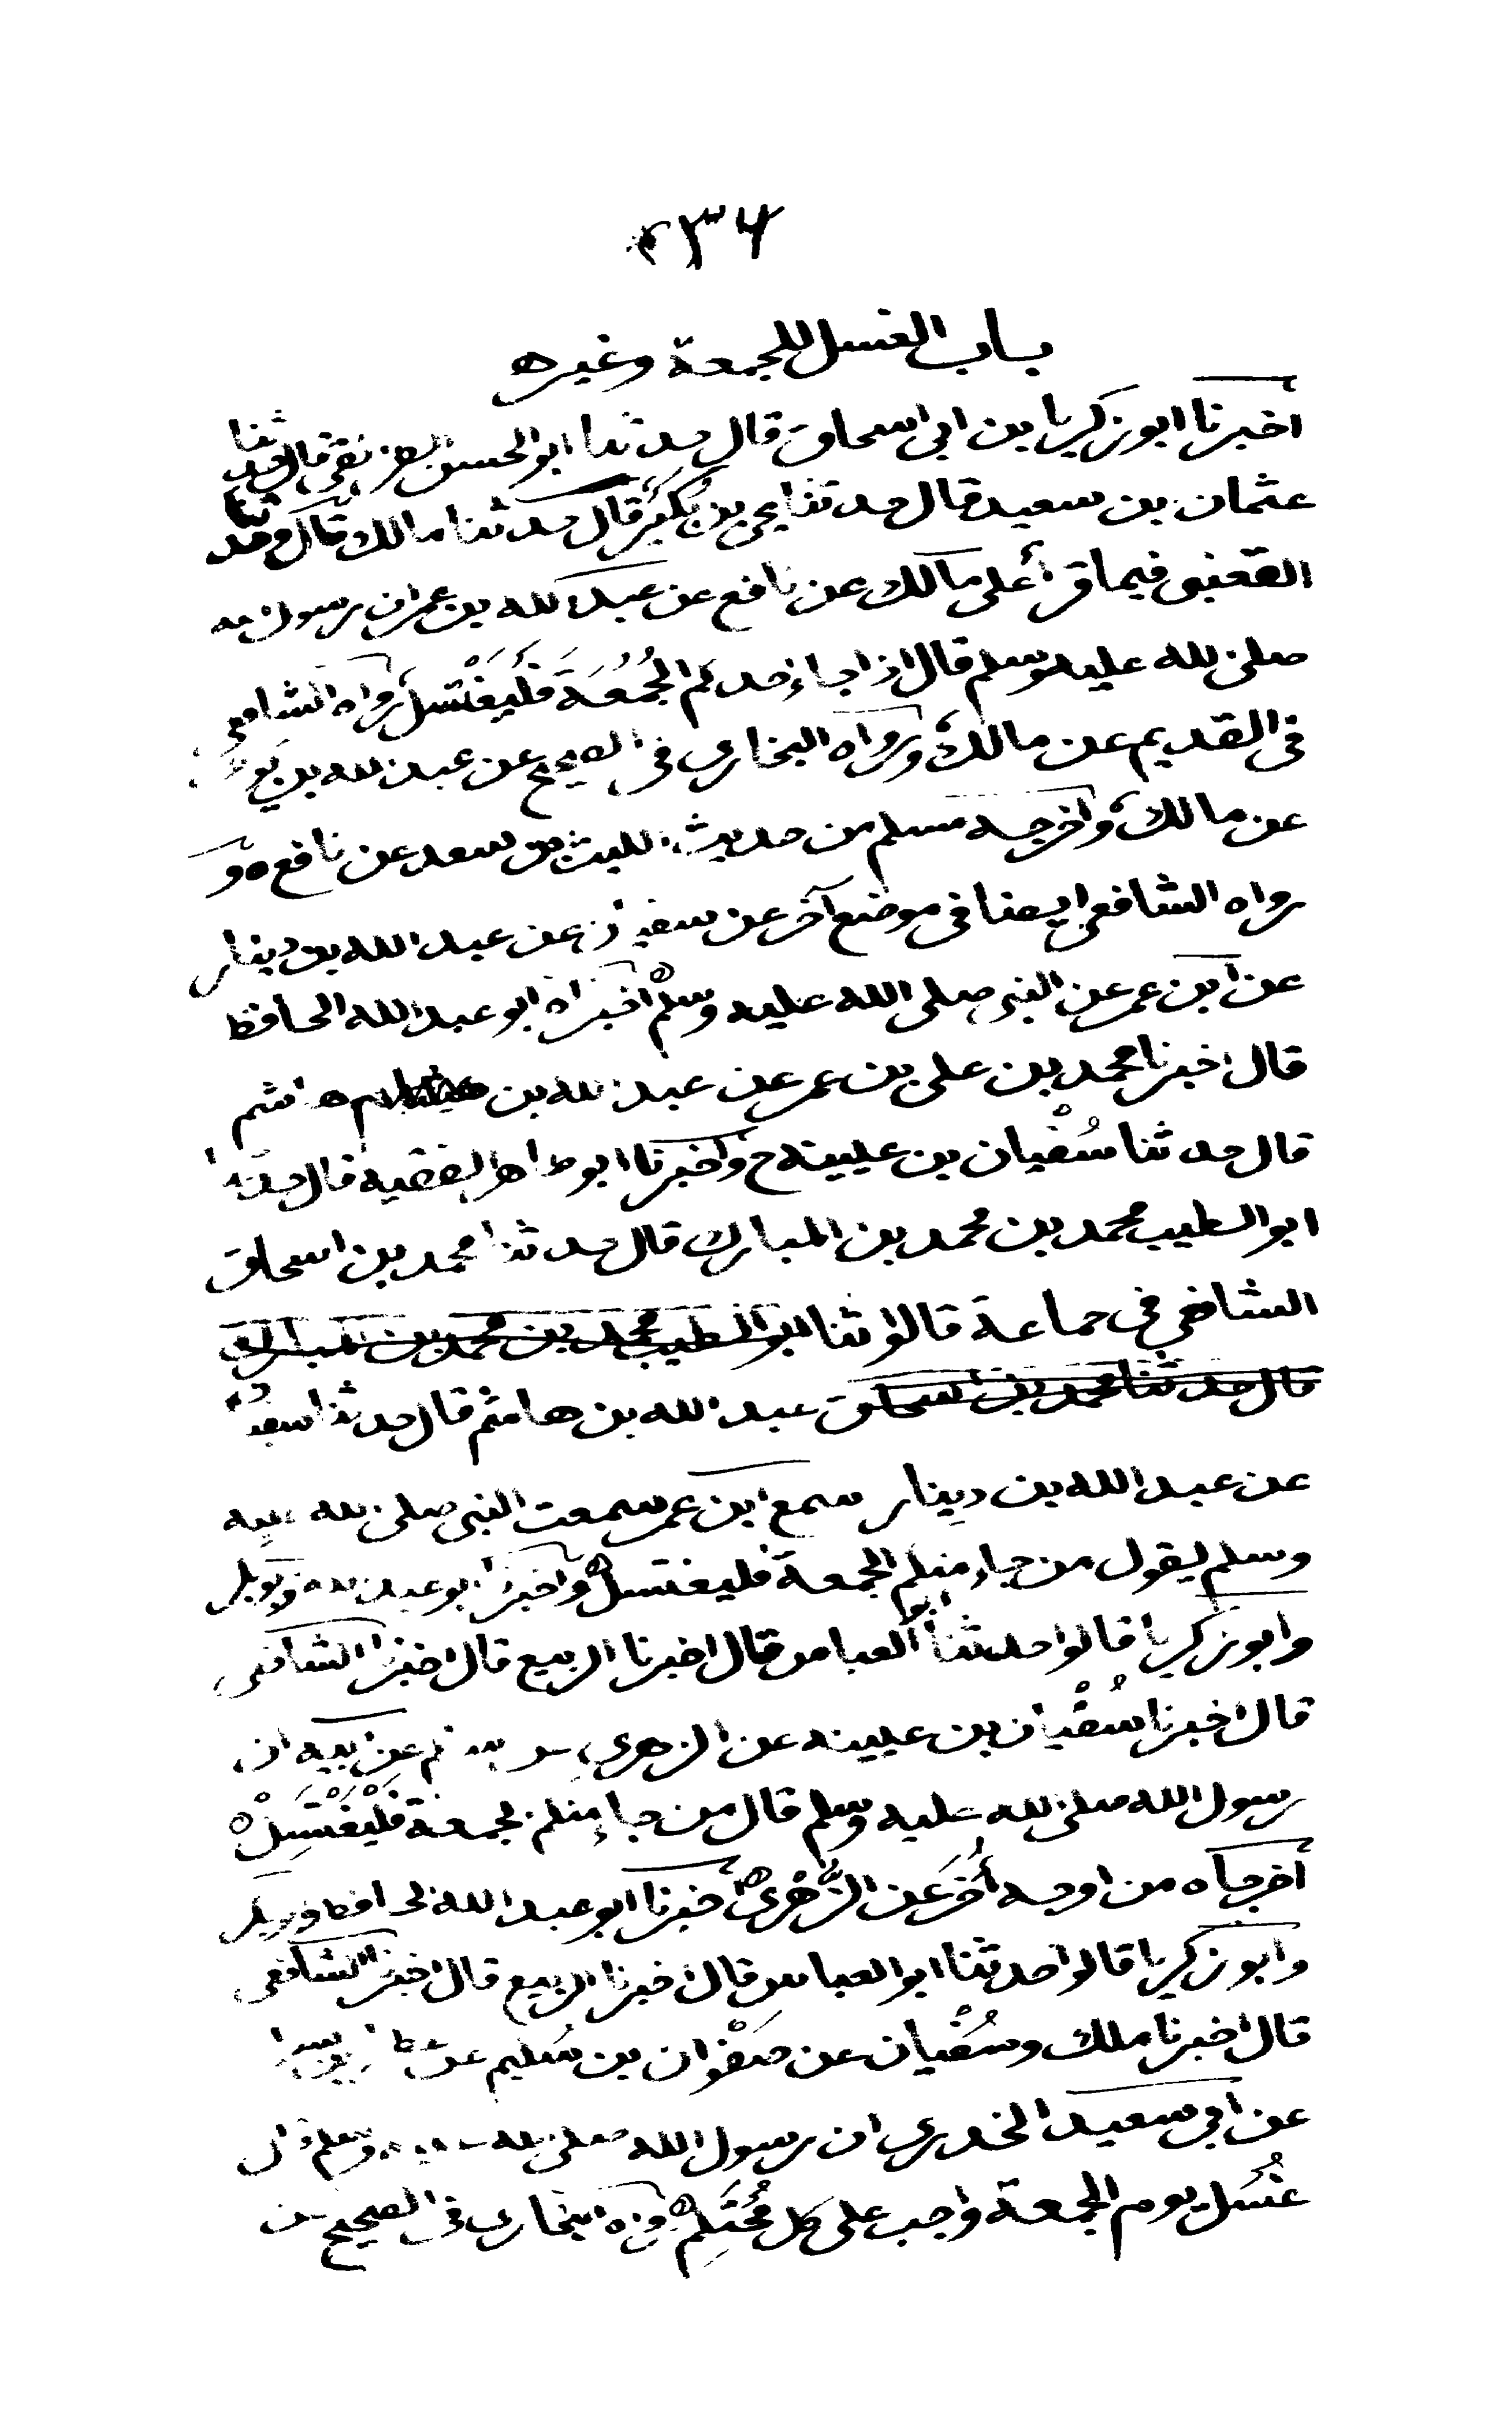 ٤٣٦
باب الغسل للجمعة وغيره
أخبرنا ابو زكريا بن ابى اسحاق قال حدثنا ابو الحسن الطرائفى قال حدثنا
عثمان بن سعيد قال حدثنا يحيى بن بكير قال حدثنا مالك قال وحدثنا
القعنبى فيما قرأ على مالك عن نافع عن عبد الله بن عمر ان رسول الله
صلى الله عليه وسلم قال اذا جاء احدكم الجُمُعَةَ فَلْيَغْتَسِلْ رواه الشافعى
فى القديم عن مالك ورواه البخارى فى الصحيح عن عبد الله بن يوسف
عن مالك واخرجه مسلم من حديث الليث بن سعد عن نافع ه و
رواه الشافعى ايضا فى موضع آخر عن سفيان عن عبد الله بن دينار
عن ابن عمر عن النبى صلى الله عليه وسلم ه اخبرناه ابو عبد الله الحافظ
قال اخبرنا محمد بن على بن عمر عن عبد الله بن هاشم
قال حدثنا سُفْيان بن عيينة ح واخبرنا ابو طاهر الفقيه قال حدثنا
ابو الطيب محمد بن محمد بن المبارك قال حدثنا محمد بن اسحاق
الشافعي فى جماعة قالوا ثنا ابو الطيب محمد بن محمد بن المبارك
قال حدثنا محمد بن اسحاق عبد الله بن هاشم قال حدثنا سفيان
عن عبد الله بن دينار سمع ابن عمر سمعت النبى صلى الله عليه
وسلم يقول من جاء منكم الجمعة فليغتسل ه واخبرنا ابو عبد الله وابو بكر
وابو زكريا قالوا حدثنا ابو العباس قال اخبرنا الربيع قال اخبرنا الشافعى
قال اخبرنا سُفْيان بن عيينه عن الزهرى عن سالم عن ابيه ان
رسول الله صلى الله عليه وسلم قال من جاء منكم الجمعة فَلْيَغْتَسِلْ ه
أخرجاه من اوجه أُخَرَ عن الزُّهْرى ه أخبرنا ابو عبد الله الحافظ وابو بكر
وابو زكريا قالوا حدثنا ابو العباس قال اخبرنا الربيع قال اخبرنا الشافعى
قال اخبرنا ملك وسُفْيان عن صَفْوان بن سُليم عن عطاء بن يسار
عن ابى سعيد الخدرى ان رسول الله صلى الله عليه وسلم قال
غُسْل يوم الجمعة واجب على كل مُحْتَلِم ه رواه البخارى فى الصحيح عن